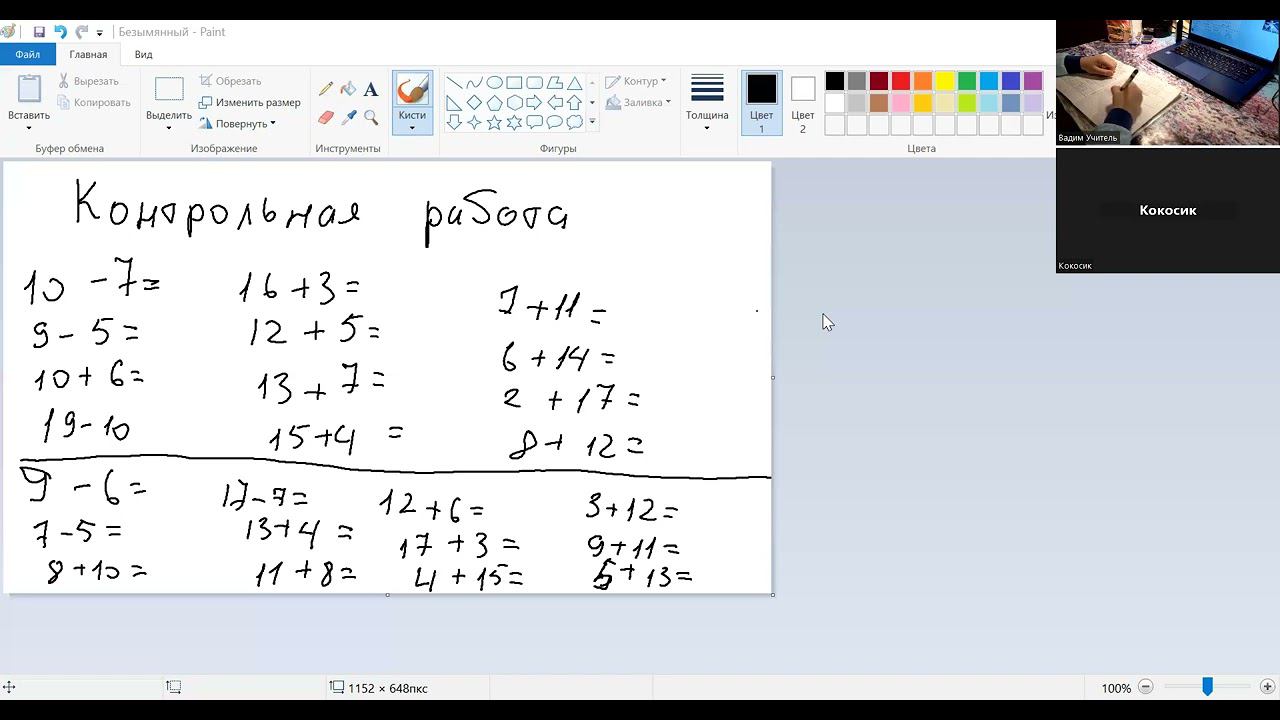 Безымянный - Paint
Файл Главная Вид
Вставить
Вырезать
Копировать
Буфер обмена
Выделить
Обрезать
Изменить размер
Повернуть
Изображение
Инструменты
Кисти
Контур
Заливка
Фигуры
Толщина
Цвет 1
Цвет 2
Цвета
Вадим Учитель
Кокосик
Кокосик
Контрольная работа
10 - 7 = 16 + 3 = 7 + 11 =
9 - 5 = 12 + 5 = 6 + 14 =
10 + 6 = 13 + 7 = 2 + 17 =
19 - 10 15 + 4 = 8 + 12 =
9 - 6 = 17 - 7 = 12 + 6 = 3 + 12 =
7 - 5 = 13 + 4 = 17 + 3 = 9 + 11 =
8 + 10 = 11 + 8 = 4 + 15 = 5 + 13 =
1152 × 648пкс
100%